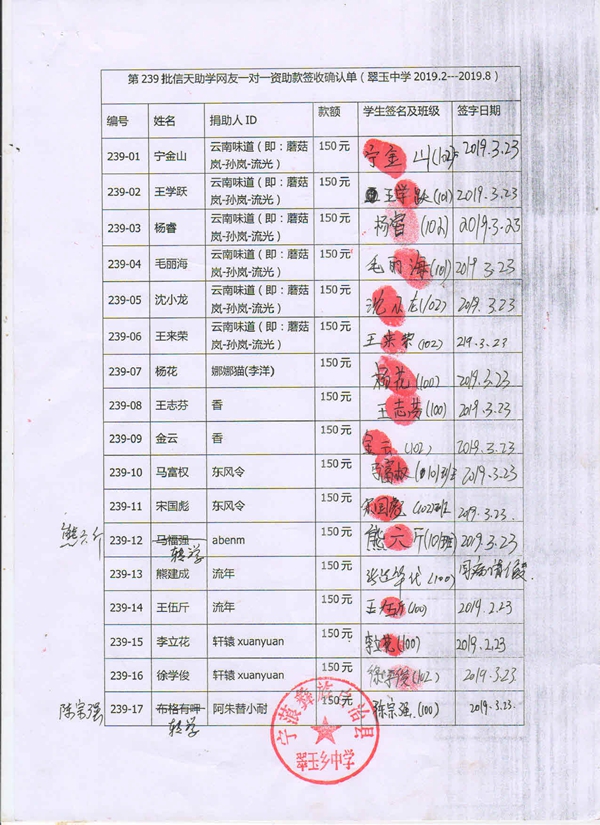 第239批信天助学网友一对一资助款签收确认单（翠玉中学2019.2---2019.8）
编号 姓名 捐助人ID 款额 学生签名及班级 签字日期
239-01 宁金山 云南味道（即：蘑菇岚-孙岚-流光） 150元 宁金山(102) 2019.3.23
239-02 王学跃 云南味道（即：蘑菇岚-孙岚-流光） 150元 王学跃(101) 2019.3.23
239-03 杨睿 云南味道（即：蘑菇岚-孙岚-流光） 150元 杨睿(102) 2019.3.23
239-04 毛丽海 云南味道（即：蘑菇岚-孙岚-流光） 150元 毛丽海(101) 2019.3.23
239-05 沈小龙 云南味道（即：蘑菇岚-孙岚-流光） 150元 沈小龙(102) 2019.3.23
239-06 王来荣 云南味道（即：蘑菇岚-孙岚-流光） 150元 王来荣(102) 219.3.23
239-07 杨花 娜娜猫(李洋) 150元 杨花(100) 2019.3.23
239-08 王志芬 香 150元 王志芬(100) 2019.3.23
239-09 金云 香 150元 金云(102) 2019.3.23
239-10 马富权 东风令 150元 马富权 2019.3.23
239-11 宋国彪 东风令 150元 宋国彪(102)班 2019.3.23
熊六斤 239-12 马福强 转学 abenm 150元 熊六斤(101班) 2019.3.23
239-13 熊建成 流年 150元 (100) 因病请假
239-14 王伍斤 流年 150元 王伍斤(100) 2019.2.23
239-15 李立花 轩辕xuanyuan 150元 李立花(100) 2019.2.23
239-16 徐学俊 轩辕xuanyuan 150元 徐学俊(102) 2019.3.23
陈宗强 239-17 布格有呷 转学 阿朱替小耐 150元 陈宗强(100) 2019.3.23
宁蒗彝族自治县
翠玉乡中学